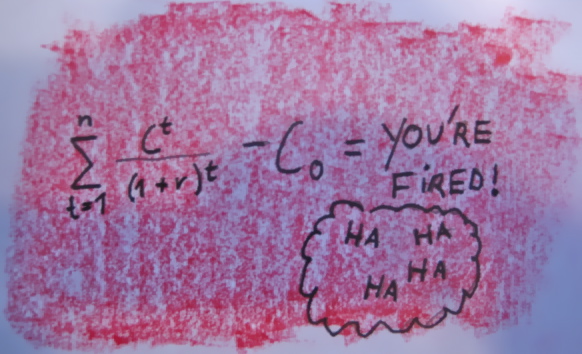 n
∑ C^t / (1 + r)^t - C₀ = YOU'RE
t=1
FiRED!
HA HA
HA HA